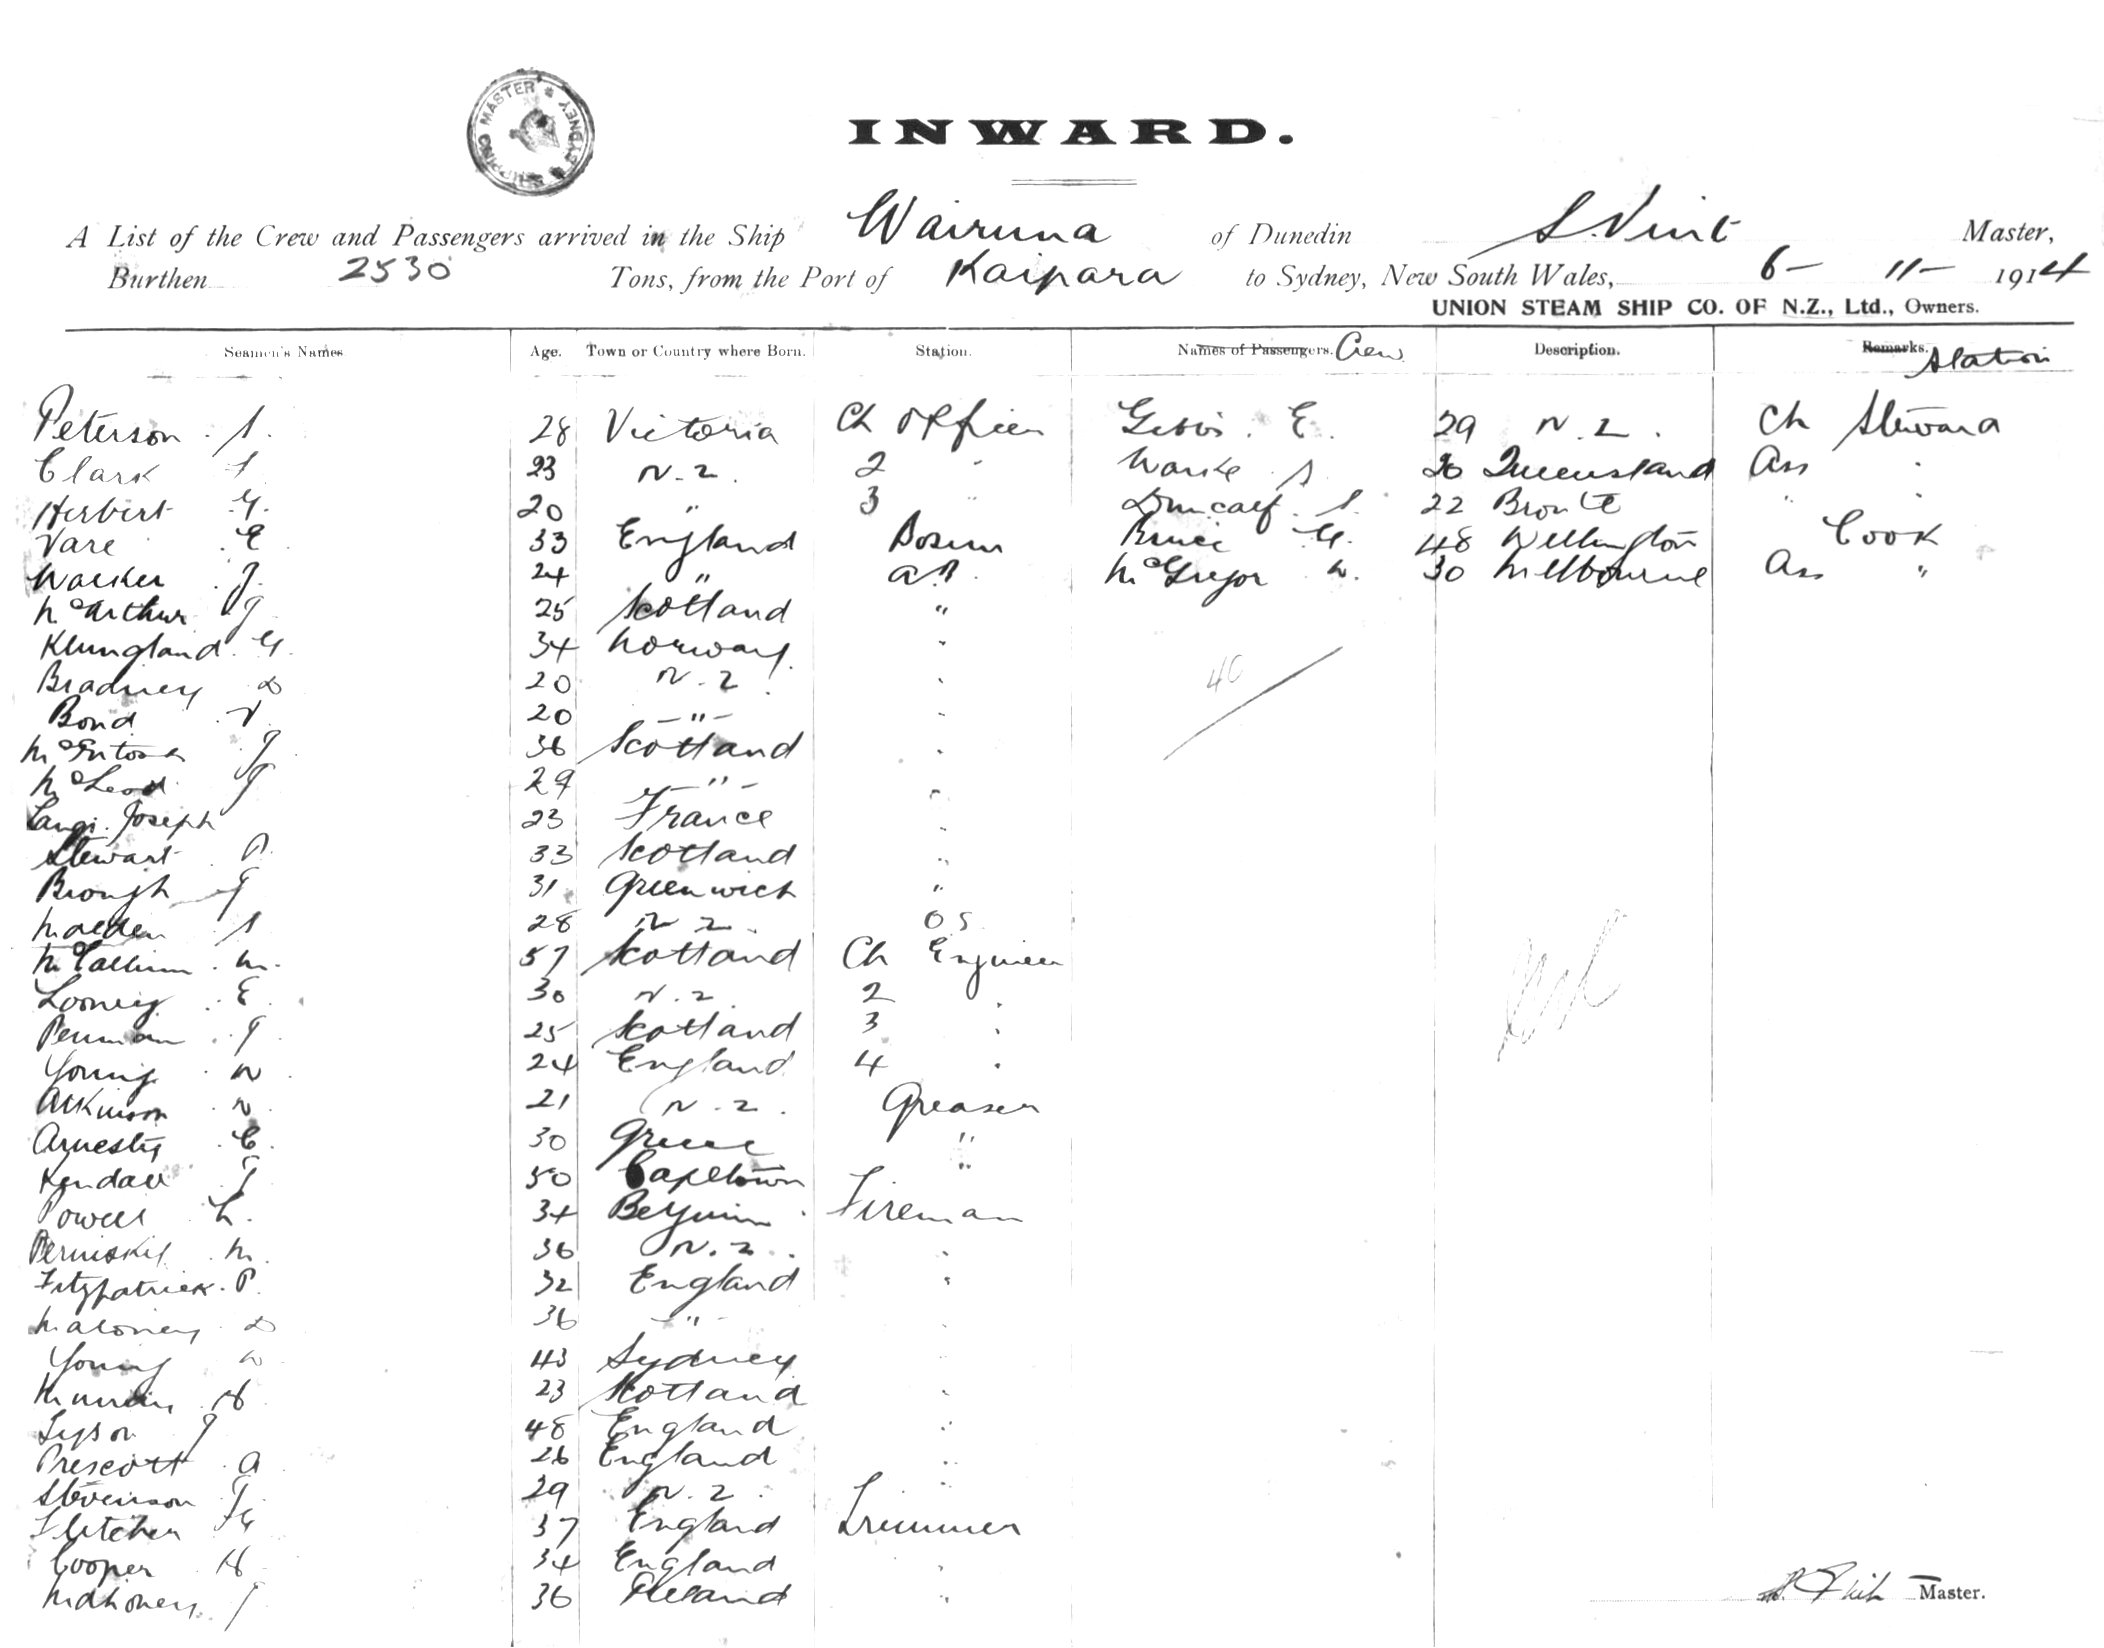 SHIPPING MASTER * SYDNEY *
INWARD.
A List of the Crew and Passengers arrived in the Ship Wairuna of Dunedin S. Vint Master,
Burthen 2530 Tons, from the Port of Kaipara to Sydney, New South Wales, 6 - 11 - 1914
UNION STEAM SHIP CO. OF N.Z., Ltd., Owners.
Seamen's Names Age. Town or Country where Born. Station. Names of Passengers. Crew Description. Remarks. Station
Peterson 28 Victoria Ch Officer Gibbs. E. 29 N.Z. Ch Steward
Clark 23 N.Z. 2 " 20 Queensland Ass "
Herbert G. 20 " 3 " Duncalf. 22 Bronte " "
Vare E 33 England Bosun Bruce G. 48 Wellington Cook
Walker J. 24 " AB. McGregor W. 30 Melbourne Ass "
McArthur J 25 Scotland "
Klungland. G. 34 Norway. "
Bradney D 20 N.Z. "
Bond V. 20 -"- "
McIntosh J 36 Scotland "
McLeod J 29 -"- "
Langi. Joseph 23 France "
Stewart 33 Scotland "
Brough J 31 Greenwich "
28 N.Z. OS
McCallum. M. 57 Scotland Ch Engineer
E. 30 N.Z. 2 "
Penman. J 25 Scotland 3 "
Young W 24 England 4 "
Atkinson W. 21 N.Z. Greaser
Arnestis C. 30 Greece "
Kendall J 50 Capetown "
Powell L. 34 Belgium Fireman
M. 36 N.Z. "
Fitzpatrick. P. 32 England "
Maloney D 36 -"- "
Young W 43 Sydney "
H 23 Scotland "
Tyson J 48 England "
Prescott A 26 England "
Stevenson J. 29 N.Z. "
Fletcher 37 England Trimmer
Cooper H 34 England "
Mahoney J 36 Ireland "
40
Master.